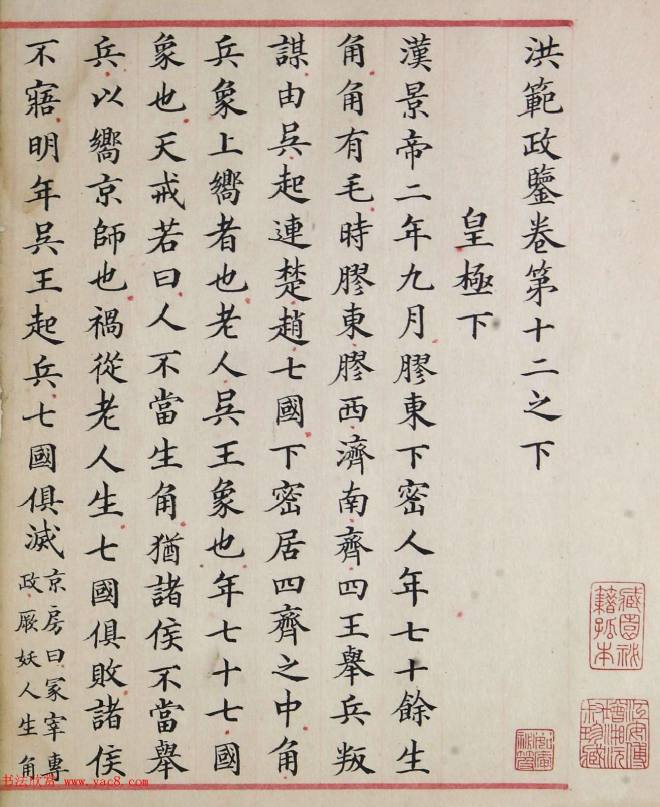 洪範政鑒卷第十二之下
皇極下
漢景帝二年九月膠東下密人年七十餘生
角角有毛時膠東膠西濟南齊四王舉兵叛
謀由吳起連楚趙七國下密居四齊之中角
兵象上嚮者也老人吳王象也年七十七國
象也天戒若曰人不當生角猶諸侯不當舉
兵以嚮京師也禍從老人生七國俱敗諸侯
不寤明年吳王起兵七國俱滅京房曰冢宰專
政厥妖人生角
藏園秘
籍孤本
江安傅
增湘沅
叔珍藏
书法欣赏 www.yac8.com